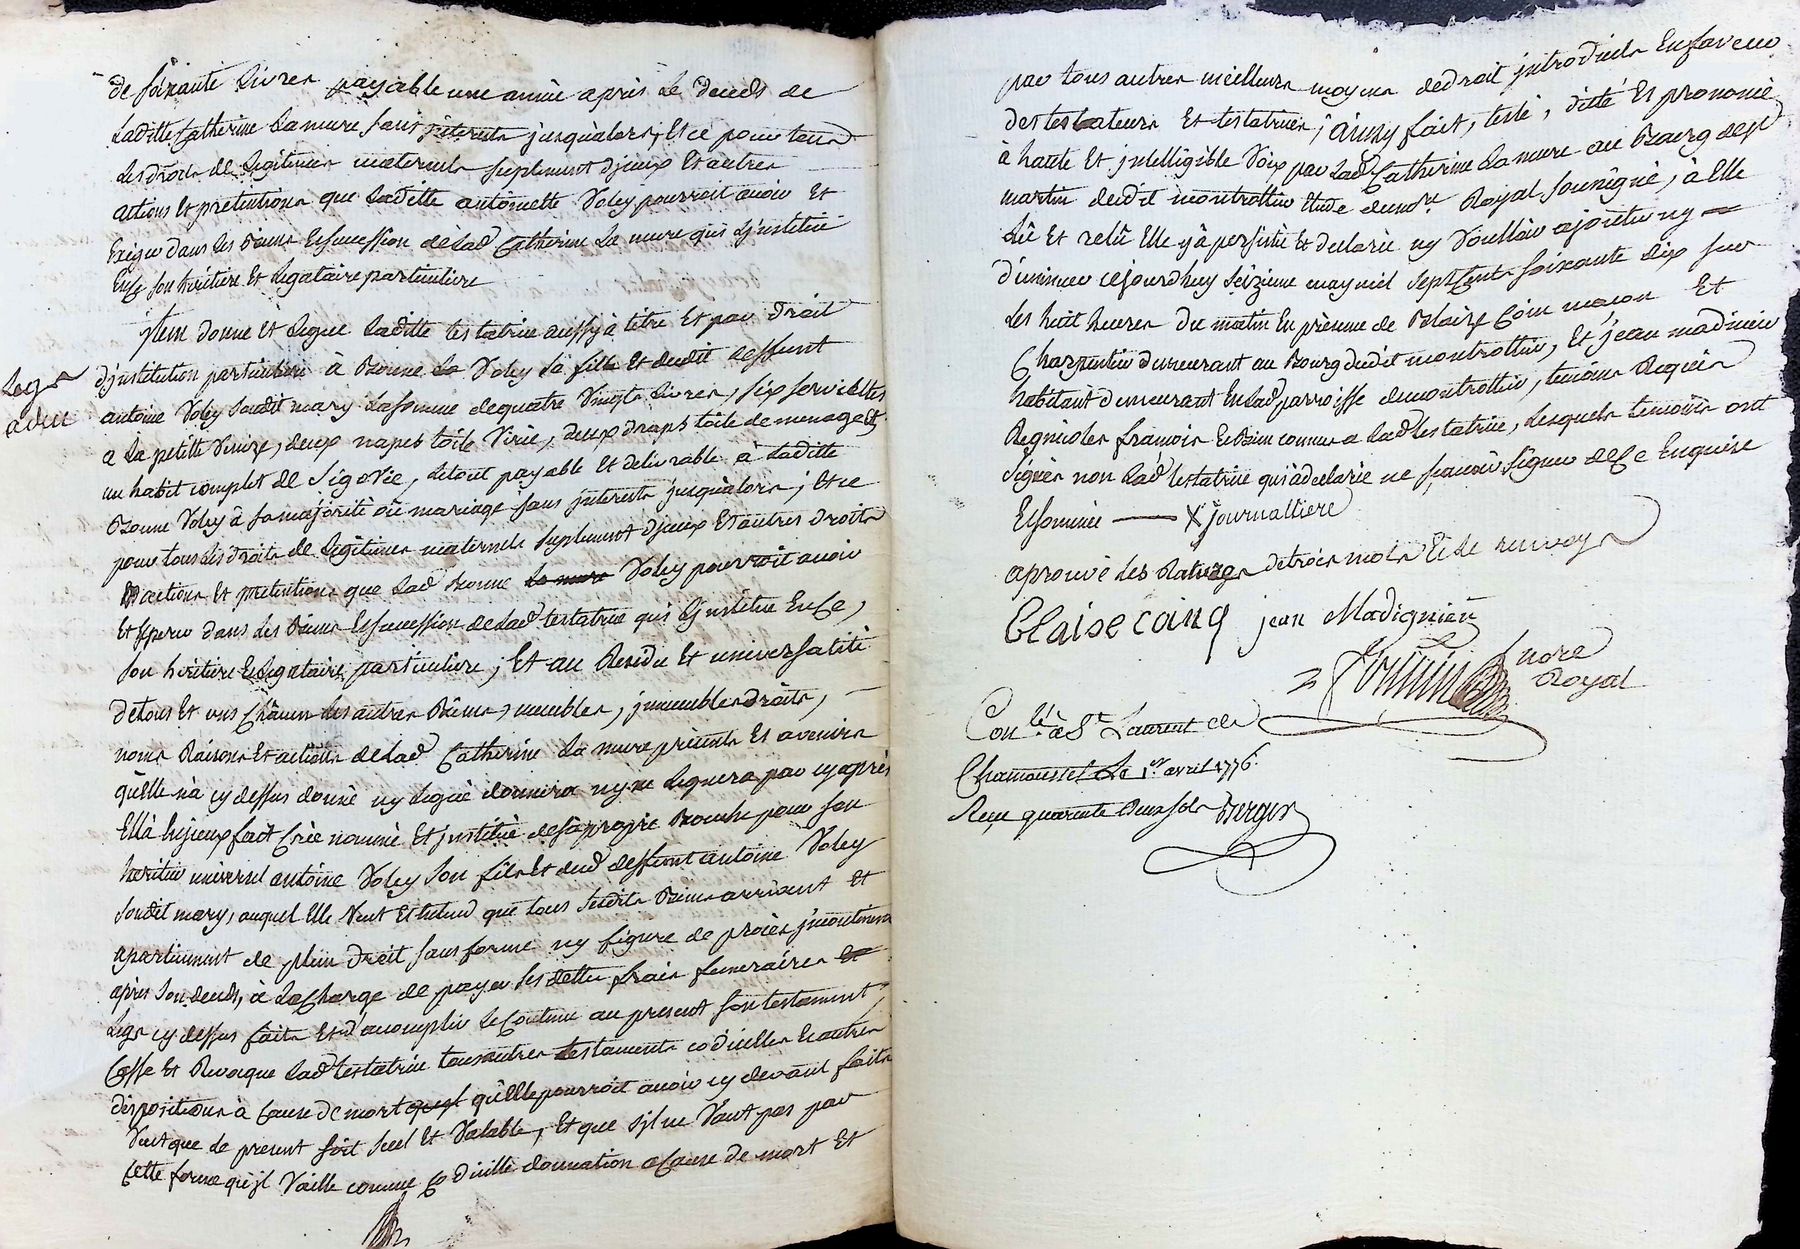 de soixante livres payable une année après le deceds de
Laditte Catherine Lamure sans jnterets jusqualors; Et ce pour tous
les droits de legitimes maternels suplement d'jceux Et autres
actions Et pretentions que Laditte antoinette Voley pourroit avoir Et
Exiger dans les Biens Et succession de Lad Catherine La mure qui L'jnstitue
En ce son heritiere Et Legataire particuliere
jtem donne et Legue Laditte testatrice aussy à titre Et par droit
d'jnstitution particuliere à Bonne La Voley sa fille Et dudit deffunt
Legs
a due
antoine Voley sondit mary La somme de quatre Vingts Livres, six serviettes
a La petitte Venize, deux napes toile Virée, deux draps toile de menage Et
un habit complet de Sigovée, Le tout payable Et delivrable à Laditte
Bonne Voley à sa majorité ou mariage sans jnterets jusqualors; Et ce
pour tous les droits de Legitimes maternels suplement d'jceux Et autres droits
actions Et pretentions que Lad Bonne La mure Voley pourroit avoir
Et Esperer dans les Biens Et succession de Lad testatrice qui L'jnstitue En Ce,
son heritiere Et Legataire particuliere; Et au Residu Et universalité
de tous Et uns Chacun les autres Biens, meubles, jmmeubles droits,
noms Raisons Et actions de Lad Catherine La mure presents Et avenirs
qu'Elle n'a cy dessus donné ny Legué donnera ny ne Leguera par cy après
Ella hijceux fait Créé nommé Et jnstitué de sa propre Bouche pour son
heritier universel antoine Voley son fils Et dud deffunt antoine Voley
sondit mary, auquel Elle Veut Et Entend que tous sesdits Biens arrivent Et
apartiennent de plein droit, sans forme ny figure de procès jncontinent
après son deceds, à La Charge de payer ses dettes frais funeraires Et
Legs cy dessus faits Et d'acomplir Le Contenu au present son testament,
Casse Et Revoque Lad testatrice tous autres testaments codicilles Et autres
dispositions à Cause de mort qu'Elle pourroit avoir cy devant faits
Veut que Le present soit seul Et Valable, Et que s'jl ne Vaut pas par
Cette forme qu'jl Vaille comme Codicille donnation a Cause de mort Et
par tous autres meilleurs moyens de droit jntroduits En faveur
des testateurs Et testatrices, ainsy fait, testé, dicté Et prononcé
à haute Et jntelligible Voix par Lad Catherine La mure au Bourg de St
martin dudit montrottier Etude du nore Royal soussigné, à Elle
Lû Et relû Elle y à persisté Et declarée ny Voulloir ajouter ny
diminuer cejourdhuy seizieme may mil sept Cents soixante dix sur
Les huit heures du matin En presence de Blaize Coin maçon Et
Charpentier demeurant au Bourg dudit montrottier, Et jean madinier
habitant demeurant En Lad parroisse de montrottier, temoins Requis
Regnicoles françois Et Bien connus a Lad testatrice, Lesquels temoins ont
signés non Lad testatrice qui à declarée ne sçavoir signer de Ce Enquise
Et sommée X journalliere
aprouvé les Ratures de trois mots Et le renvoy
Blaise coing jean Madignien
nore
Royal
Conlé à St Laurent de
Chamousset Le 1er avril 1776.
Reçu quarante Deux sols Berger